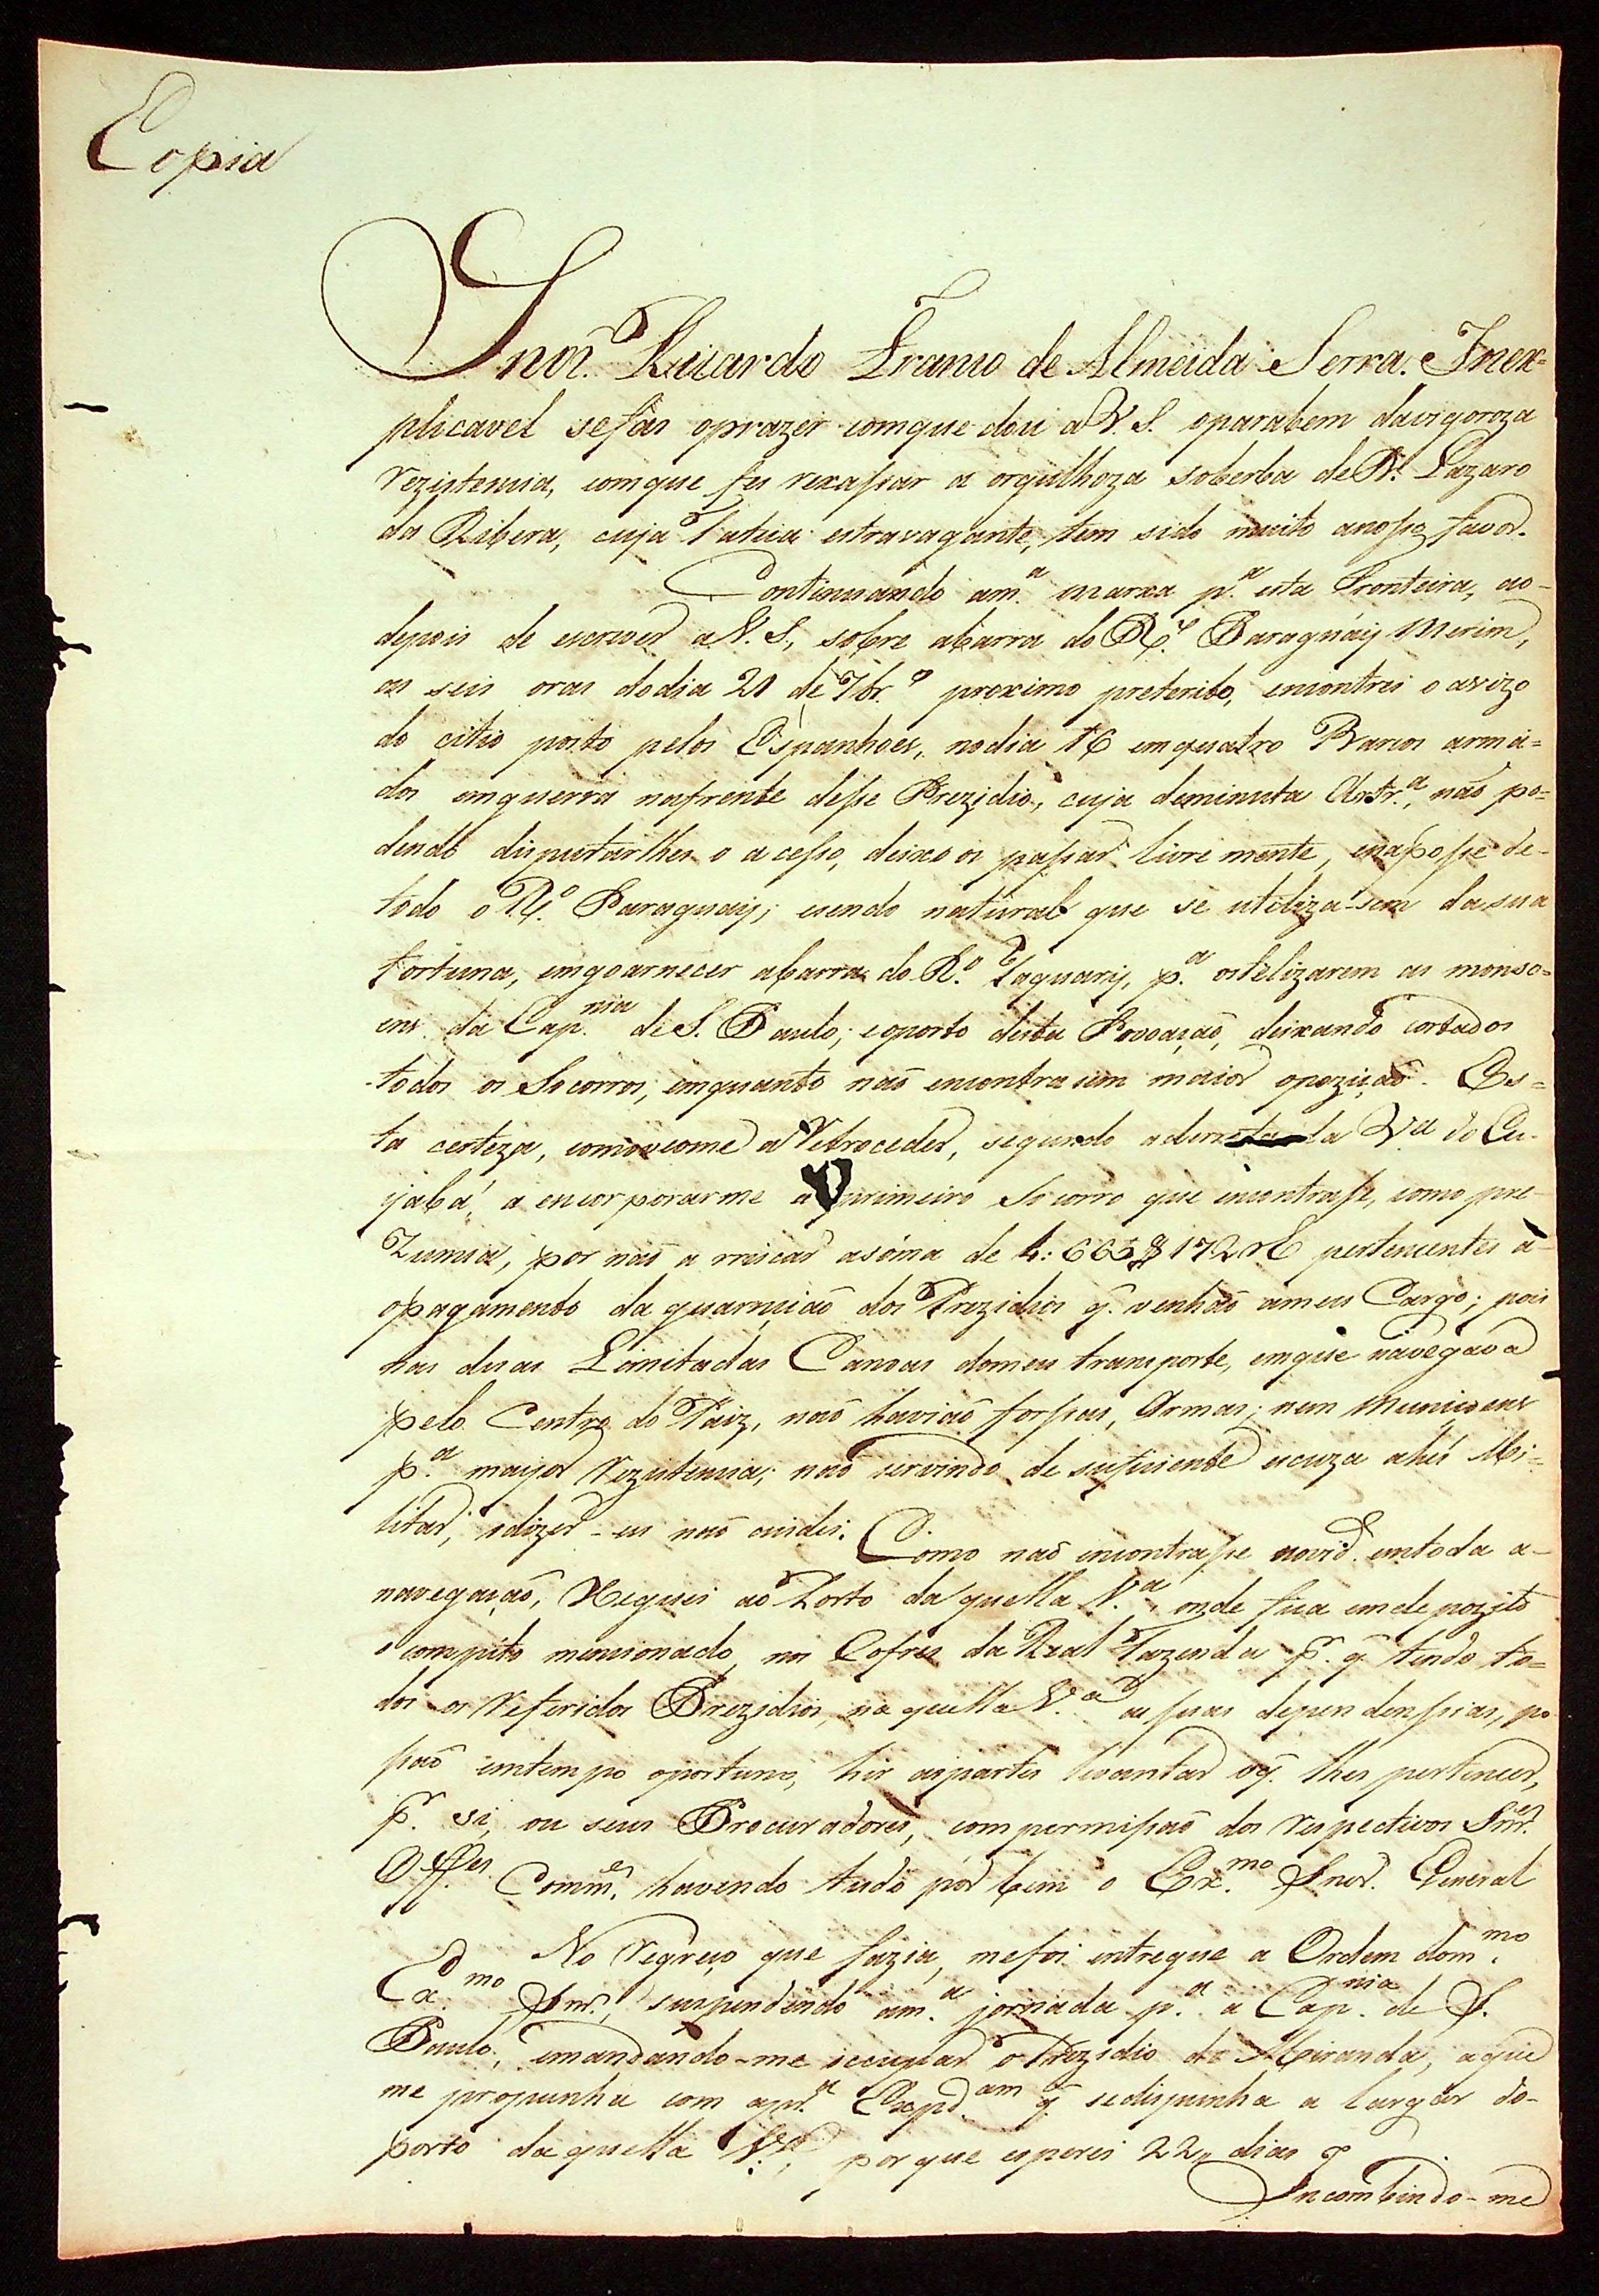 Copia
Snor. Ricardo Franco de Almeida Serra. Inex=
plicavel se fás oprazer comque dou a V. S. oparabem davigoroza
rezistencia, comque fes rexasar a orgulhoza soberba de D. Lazaro
da Ribera, cuja tatica estravagante, tem sido muito anoso favor.
Continuando am.ª marxa p.ª esta Fronteira, ao-
depois de escrever a V. S., sobre abarra do R.º Paraguáy Merim,
as seis oras dodia 21 de 7br.º proximo preterito, encontrei o avizo
do citio posto pelos Espanhoes, nodia 16 emquatro Barcos arma=
dos emguerra nafrente dese Prezidio, cuja deminuta Artr.ª, não po=
dendo disputarlhes o aceso, deixo os pasar livre mente, enaposse de-
todo o R.º Paraguay; esendo natural que se utiliza-sem dasua
fortuna, emgoarnecer abarra do R.º Taquary, p.ª ostelizarem as monso=
ens da Cap.nia de S. Paulo; eoporto desta Povoação, deixando cortados
todos os Socorros, emquanto não encontrasem maior opozição. Es=
ta certeza, a Retroceder, segundo da V.ª do Cu-
yabá, a encorporarme a primeiro Socorro que encontrase, como pre-
zumia, por não a rriscar asóma de 4:665$172 rE pertencentes a-
opagamento da guarnição dos Prezidios q̃. venhão ameu Cargo; pois
nas duas Limitadas Canoas domeu transporte, emque navegava
pelo Centro do Paiz, não havião forsas, Armas, nem Muniçoens
p.ª mayor rezistencia; não servindo de suficiente escuza aLei Mi-
litar, odizer-eu não cuidei. Como não encontrase novid.e emtoda a-
navegação, Xeguei ao Porto daquella V.ª, onde fica emdepozito
o computo mencionado, nos Cofres da Real Fazenda p.r q̃ tendo to=
dos os referidos Prezidios, naquella V.ª as suas dependensias, po-
são emtempo oportuno, hir aspartes levantar oq̃. lhes pertencer,
p.r si, ou seus Procuradores, compermisão dos respectivos Snr.es
Off.es Comm.es, havendo tudo por bem o Ex.mo Snor. General
No regreço que fazia, mefoi entregue a Ordem dom.mo
Ex.mo Snr., suspendendo am.ª jornada p.ª a Cap.nia de S.
Paulo, emandando-me occupar o Prezidio de Miranda, aque
me propunha com apr.ª Exped.am q̃ sedispunha a largar do-
porto daquella V.ª, porque esperei 22 dias
Incombindo-me